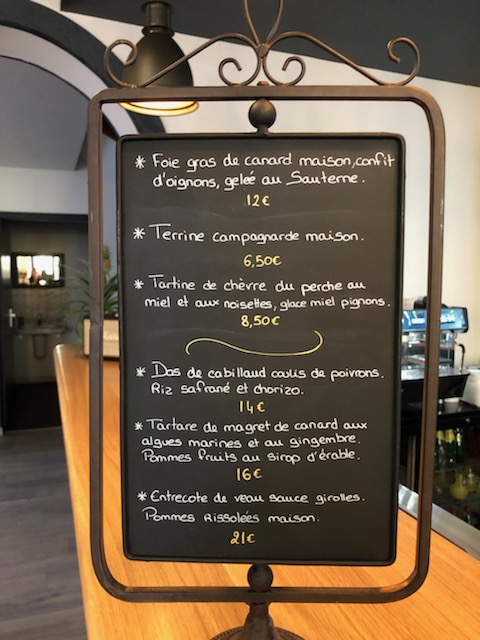 * Foie gras de canard maison, confit
d'oignons, geleé au Sauterne.
12€
* Terrine campagnarde maison.
6,50€
* Tartine de chèvre du perche au
miel et aux noisettes, glace miel pignons.
8,50€
* Dos de cabillaud coulis de poivrons.
Riz safrané et chorizo.
14€
* Tartare de magret de canard aux
algues marines et au gingembre.
Pommes fruits au sirop d'érable.
16€
* Entrecote de veau sauce girolles.
Pommes Rissolées maison.
21€